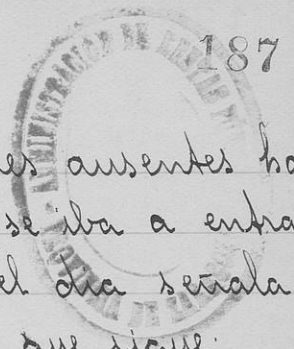 187
ADMINISTRACION DE RENTAS
es ausentes ha
se iba a entra
el dia señala
que sigue: